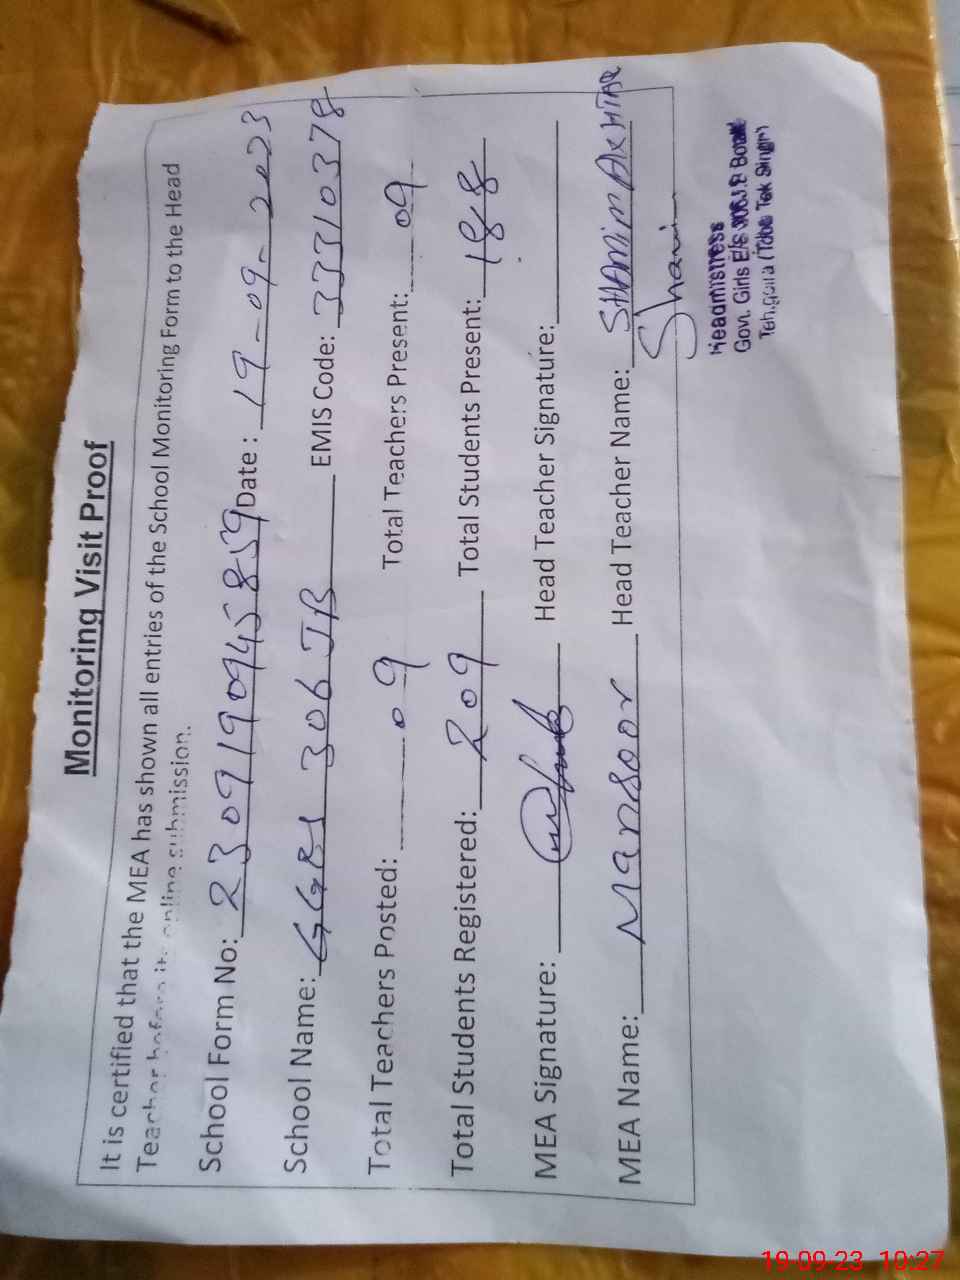 Monitoring Visit Proof
It is certified that the MEA has shown all entries of the School Monitoring Form to the Head
Teacher before its online submission.
School Form No: 23091909458559 Date: 19-09-2023
School Name: 306 JB EMIS Code: 33310378
Total Teachers Posted: 09 Total Teachers Present: 09
Total Students Registered: 209 Total Students Present: 188
MEA Signature: Head Teacher Signature:
MEA Name: Mansoor Head Teacher Name: SHAMIM AKHTAR
Headmistress
Govt. Girls E/S 306 J.B
(Toba Tek Singh)
19-09-23 10:27